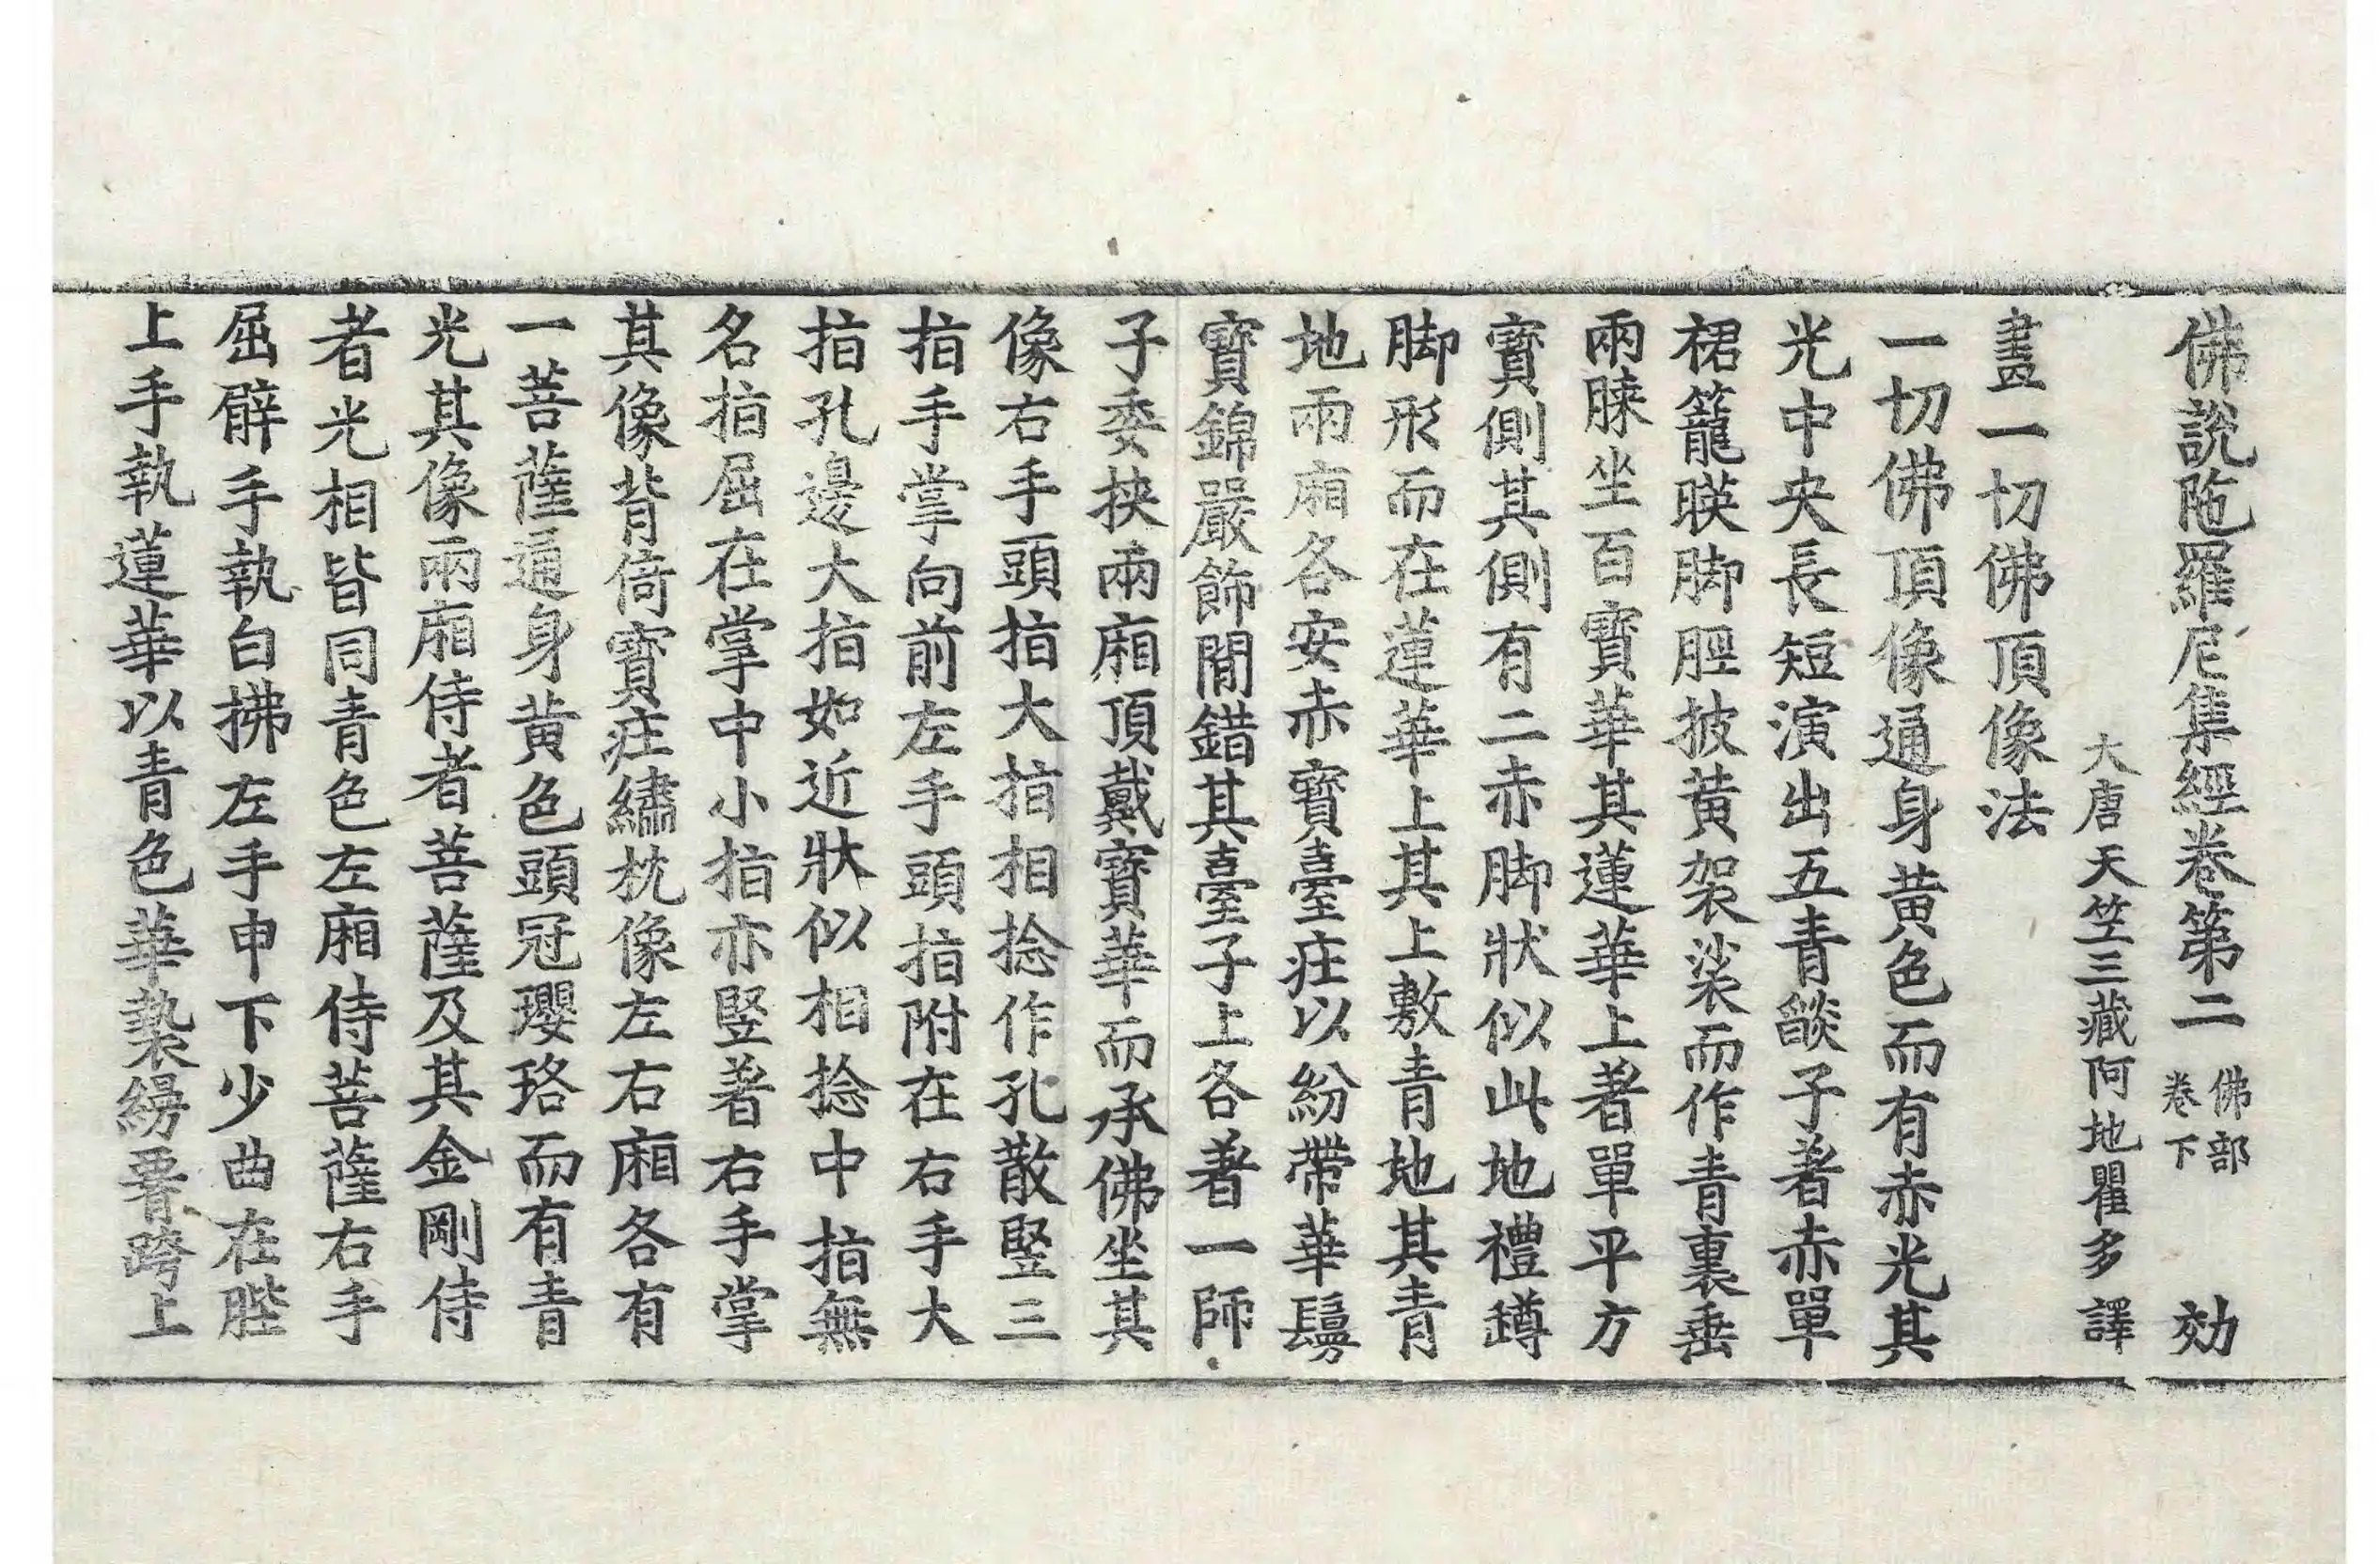 佛說陁羅尼集經卷第二 佛部卷下 効
大唐天竺三藏阿地瞿多 譯
畫一切佛頂像法
一切佛頂像通身黃色而有赤光其
光中央長短演出五青燄子著赤單
裙籠䁐脚脛披黃袈裟而作青裏垂
兩䏶坐百寶華其蓮華上著單平方
寶側其側有二赤脚狀似此地禮蹲
脚形而在蓮華上其上敷青地其青
地兩廂各安赤寶臺㽵以紛帶華鬘
寶錦嚴飾閒錯其臺子上各著一師
子委挾兩廂頂戴寶華而承佛坐其
像右手頭指大指相捻作孔散竪三
指手掌向前左手頭指附在右手大
指孔邊大指如近狀似相捻中指無
名指屈在掌中小指亦竪著右手掌
其像背倚寶㽵繡枕像左右廂各有
一菩薩通身黃色頭冠瓔珞而有青
光其像兩廂侍者菩薩及其金剛侍
者光相皆同青色左廂侍菩薩右手
屈臂手執白拂左手申下少曲在䏶
上手執蓮華以青色華褺繞䯗跨上